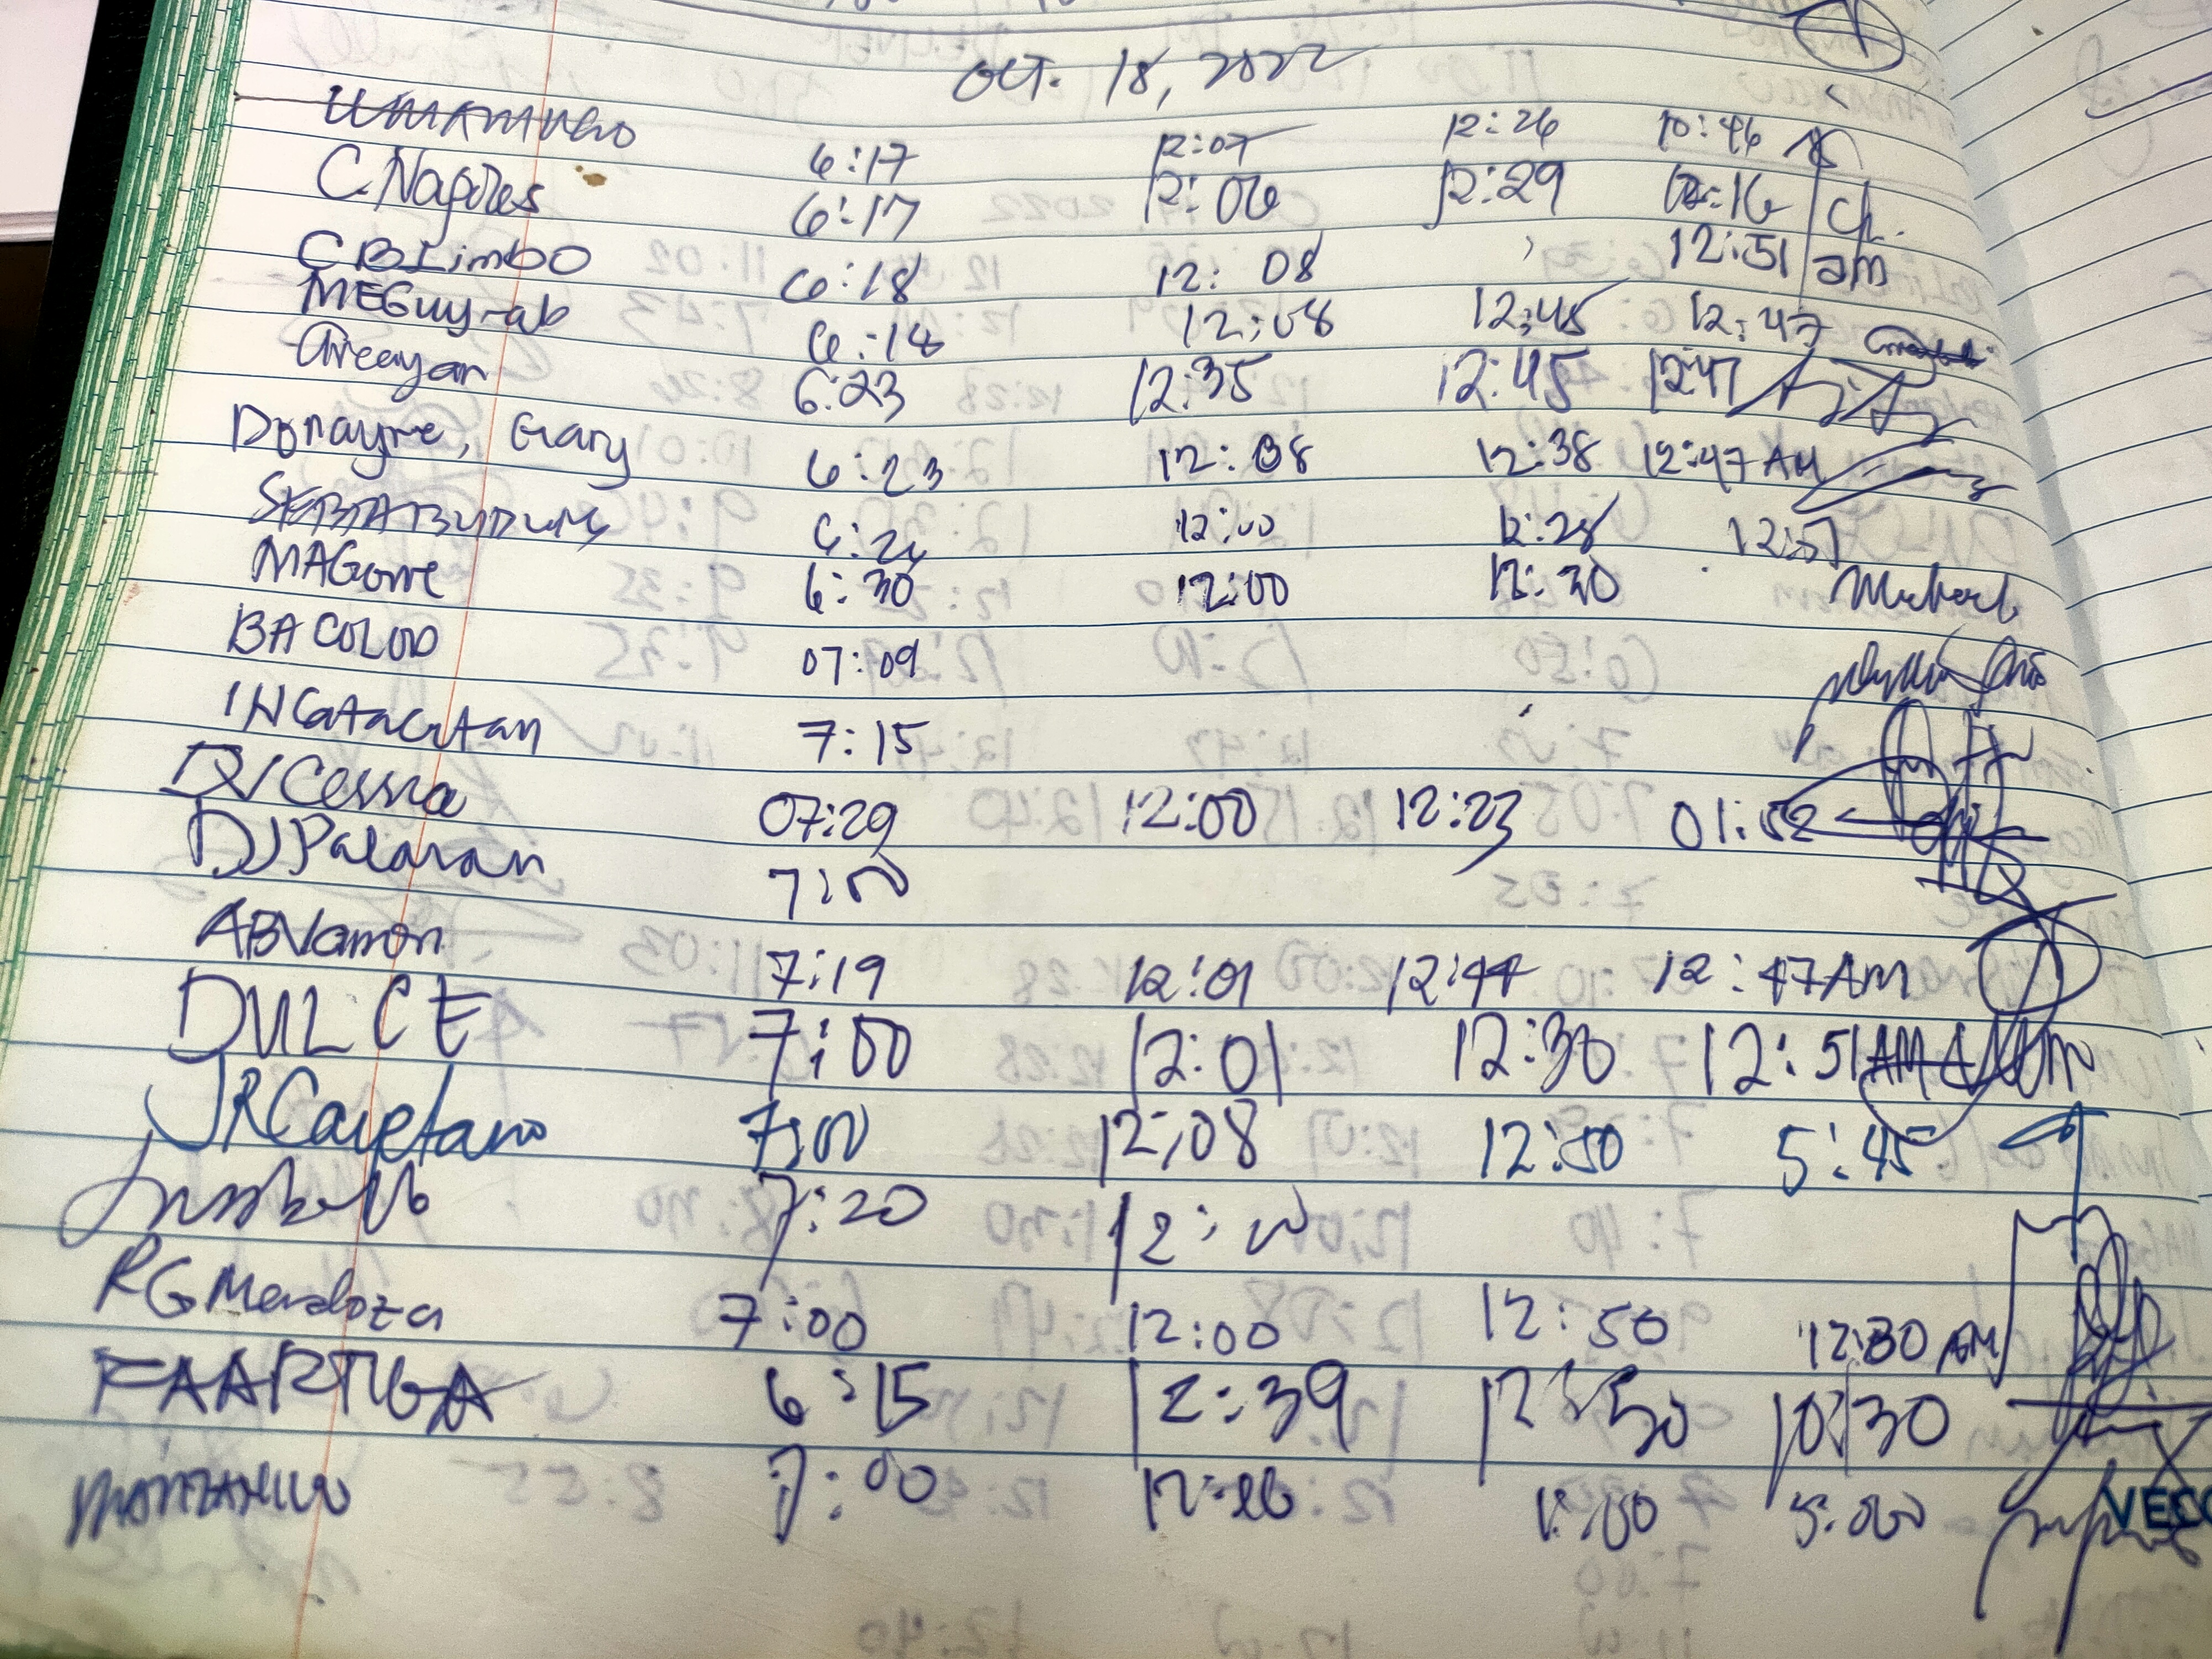 Oct. 18, 2022
6:17 12:07 12:26 10:46
C. Nagores 6:17 12:06 12:29 12:16 Ch.
CBLimbo 6:18 12:08 12:51 am
MEGuy-ab 6:18 12:08 12:45 12:47
Arcayan 6:23 12:35 12:45 12:47
Donayre, Gary 6:23 12:08 12:38 12:47 AM
12:00 12:28 12:51
MAGorre 6:30 12:00 12:30
BACOLOD 07:09
INGatacutan 7:15
DJCessna 07:29 12:00 12:23 01:52
DJPalaran 7:00
ABVamon 7:19 12:01 12:44 12:47AM
DULCE 7:00 12:01 12:30 12:51AM
JRCayetano 7:00 12:08 12:50 5:45
7:20 12:00
RGMendoza 7:00 12:00 12:50 12:30 AM
FAARTUGA 6:15 12:39 12:50 10:30
7:00 5:00
VECO